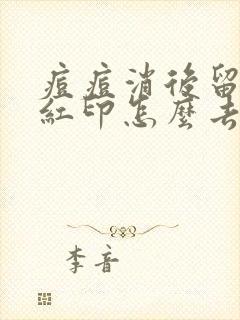 痘痘消後留
紅印怎麼去
李音